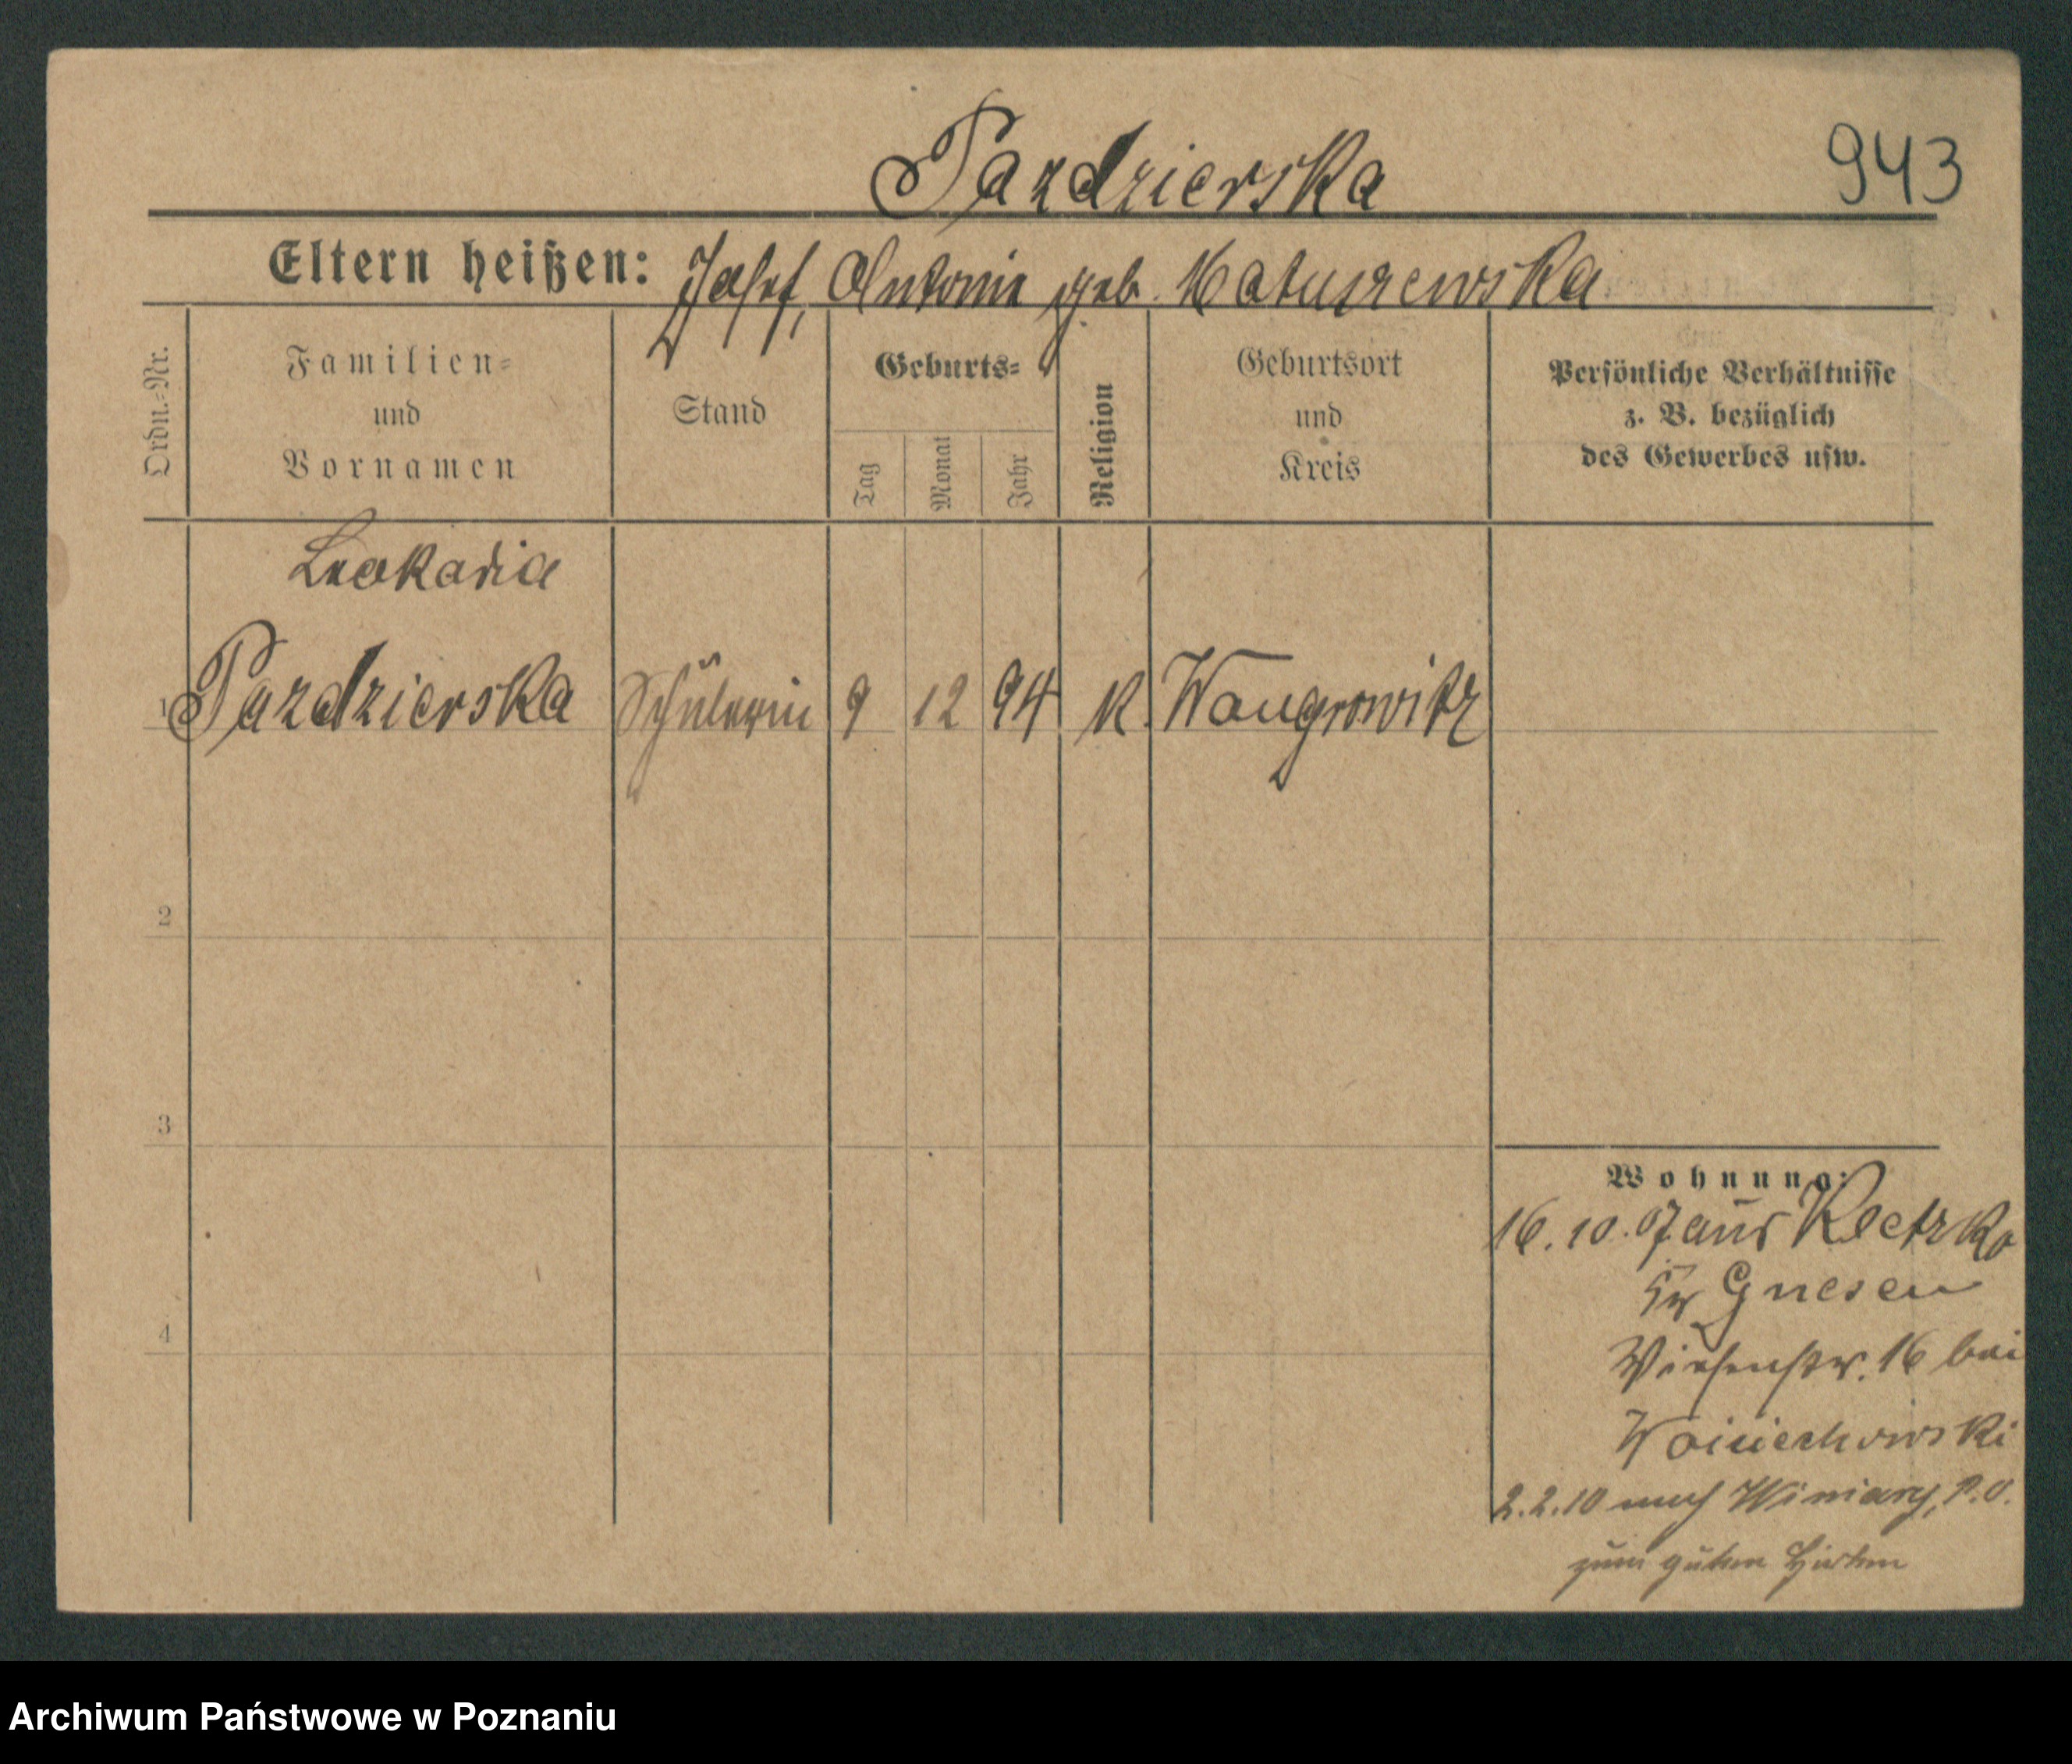 Pazdzierska
943
Eltern heißen: Josef, Antonie geb. Matuszewska
Ordn.-Nr.
Familien-
und
Vornamen
Stand
Geburts-
Tag
Monat
Jahr
Religion
Geburtsort
und
Kreis
Persönliche Verhältnisse
z. B. bezüglich
des Gewerbes usw.
Leokadia
1 Pazdzierska Schülerin 9 12 94 K. Wongrowitz
2
3
4
Wohnung:
16.10.07 aus Kletzko
Kr Gnesen
Wiesenstr. 16 bei
Woiciechowski
2.2.10 nach Winiary, P.O.
zum guten Hirten
Archiwum Państwowe w Poznaniu